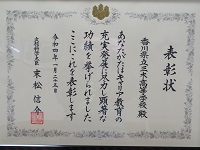 表彰状
香川県立三木高等学校殿
あなたがたはキャリア教育の
充実発展に尽力し顕著な
功績を挙げられました
ここにこれを表彰します
令和四年一月二十五日
文部科学大臣
末松信介